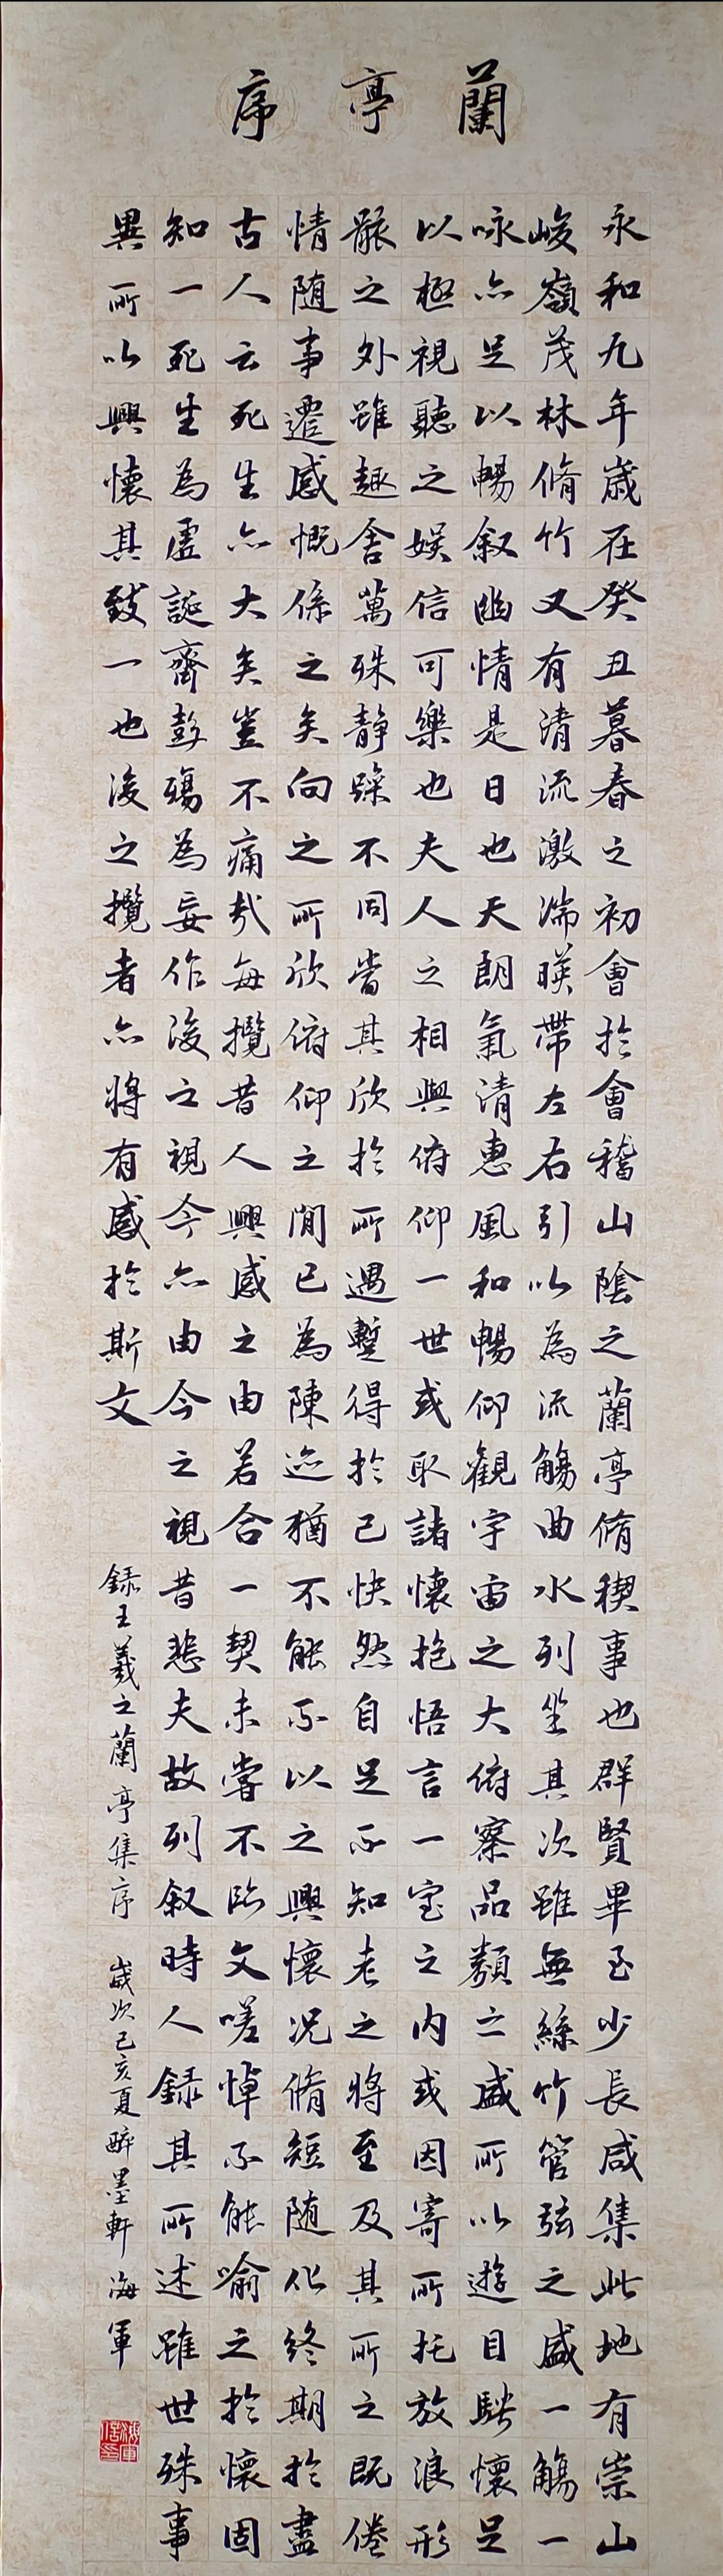 蘭亭序
永和九年歲在癸丑暮春之初會於會稽山陰之蘭亭脩禊事也群賢畢至少長咸集此地有崇山
峻嶺茂林脩竹又有清流激湍暎帶左右引以為流觴曲水列坐其次雖無絲竹管弦之盛一觴一
咏亦足以暢叙幽情是日也天朗氣清惠風和暢仰觀宇宙之大俯察品類之盛所以遊目騁懷足
以極視聽之娛信可樂也夫人之相與俯仰一世或取諸懷抱悟言一室之内或因寄所托放浪形
骸之外雖趣舍萬殊静躁不同當其欣於所遇蹔得於己快然自足不知老之將至及其所之既倦
情随事遷感慨係之矣向之所欣俯仰之閒已為陳迹猶不能不以之興懷况脩短随化終期於盡
古人云死生亦大矣豈不痛哉每攬昔人興感之由若合一契未嘗不臨文嗟悼不能喻之於懷固
知一死生為虛誕齊彭殤為妄作後之視今亦由今之視昔悲夫故列叙時人録其所述雖世殊事
異所以興懷其致一也後之攬者亦將有感於斯文
録王羲之蘭亭集序 歲次己亥夏醉墨軒海軍